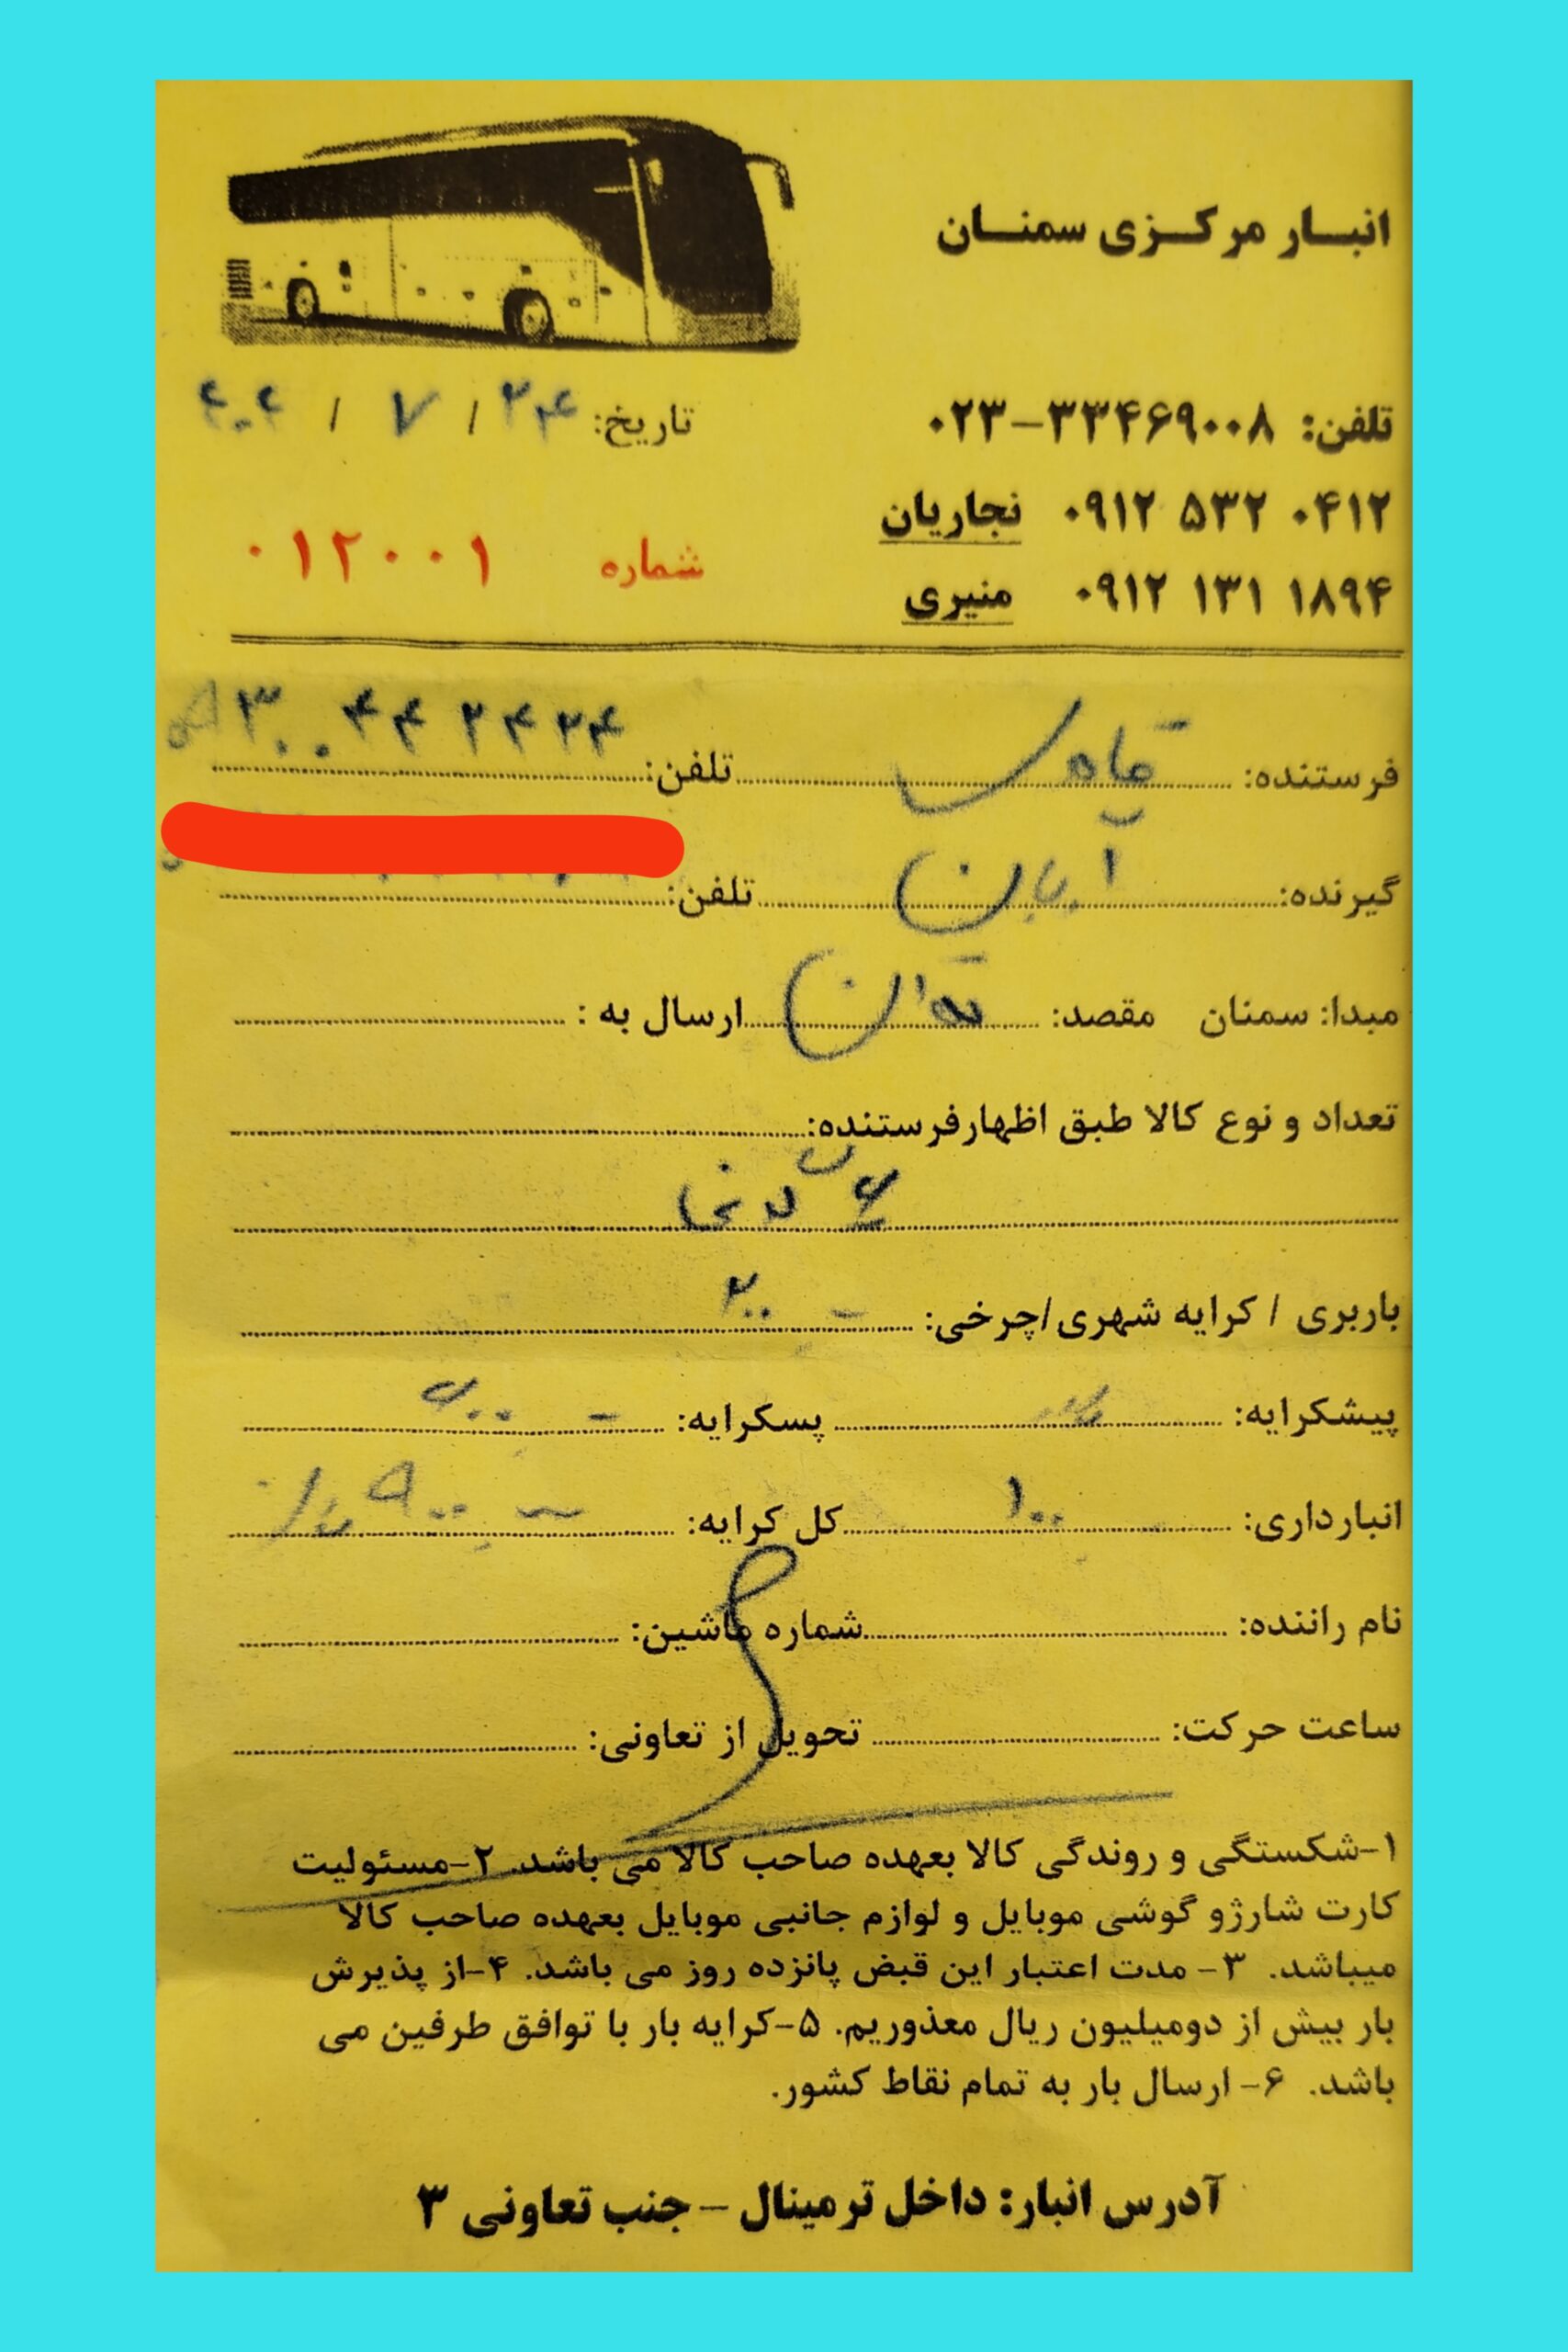 انبار مرکزی سمنان
تلفن: ۰۲۳-۳۳۴۶۹۰۰۸
تاریخ: ۲۴ / ۷ / ۴۰۴
۰۹۱۲ ۵۳۲ ۰۴۱۲ نجاریان
شماره ۰۱۲۰۰۱
۰۹۱۲ ۱۳۱ ۱۸۹۴ منیری
فرستنده: تلفن:
گیرنده: تلفن:
مبدا: سمنان مقصد: تهران ارسال به :
تعداد و نوع کالا طبق اظهارفرستنده:
باربری / کرایه شهری/چرخی: ۲۰۰
پیشکرایه: پسکرایه:
انبارداری: ۱۰۰ کل کرایه:
نام راننده: شماره ماشین:
ساعت حرکت: تحویل از تعاونی:
۱-شکستگی و روندگی کالا بعهده صاحب کالا می باشد. ۲-مسئولیت
کارت شارژو گوشی موبایل و لوازم جانبی موبایل بعهده صاحب کالا
میباشد. ۳- مدت اعتبار این قبض پانزده روز می باشد. ۴-از پذیرش
بار بیش از دومیلیون ریال معذوریم. ۵-کرایه بار با توافق طرفین می
باشد. ۶- ارسال بار به تمام نقاط کشور.
آدرس انبار: داخل ترمینال - جنب تعاونی ۳